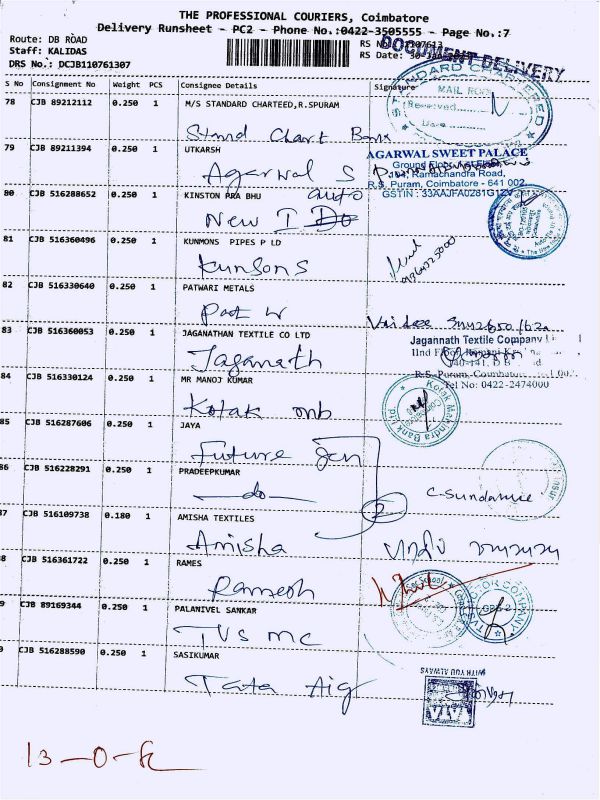 THE PROFESSIONAL COURIERS, Coimbatore
Delivery Runsheet - PC2 - Phone No.:0422-3505555 - Page No.:7
Route: DB ROAD
Staff: KALIDAS
DRS No.: DCJB110761307
RS Date: 30
DOCUMENT DELIVERY
S No Consignment No Weight PCS Consignee Details Signature
78 CJB 89212112 0.250 1 M/S STANDARD CHARTEED,R.SPURAM
Stand Chart Bank
STANDARD CHARTERED
MAIL ROOM
Received
Date
79 CJB 89211394 0.250 1 UTKARSH
Agarwal S
AGARWAL SWEET PALACE
Ramachandra Road,
R.S. Puram, Coimbatore - 641 002
GSTIN : 33AAJFA0281G1ZV
80 CJB 516288652 0.250 1 KINSTON PRA BHU
auto
New I Do
81 CJB 516360496 0.250 1 KUNMONS PIPES P LD
Kunsons
82 CJB 516330640 0.250 1 PATWARI METALS
Pat W
83 CJB 516360053 0.250 1 JAGANATHAN TEXTILE CO LTD
Jaganath
Jagannath Textile Company
IInd Floor
R.S. Puram, Coimbatore
Tel No: 0422-2474000
84 CJB 516330124 0.250 1 MR MANOJ KUMAR
Kotak mb
Kotak Mahindra Bank
85 CJB 516287606 0.250 1 JAYA
Future Gen
86 CJB 516228291 0.250 1 PRADEEPKUMAR
-do-
2
C-Sundarie
87 CJB 516109738 0.180 1 AMISHA TEXTILES
Amisha
88 CJB 516361722 0.250 1 RAMES
Ramesh
89 CJB 89169344 0.250 1 PALANIVEL SANKAR
TVS mc
90 CJB 516288590 0.250 1 SASIKUMAR
Tata Aig
WITH YOU ALWAYS
13-0-